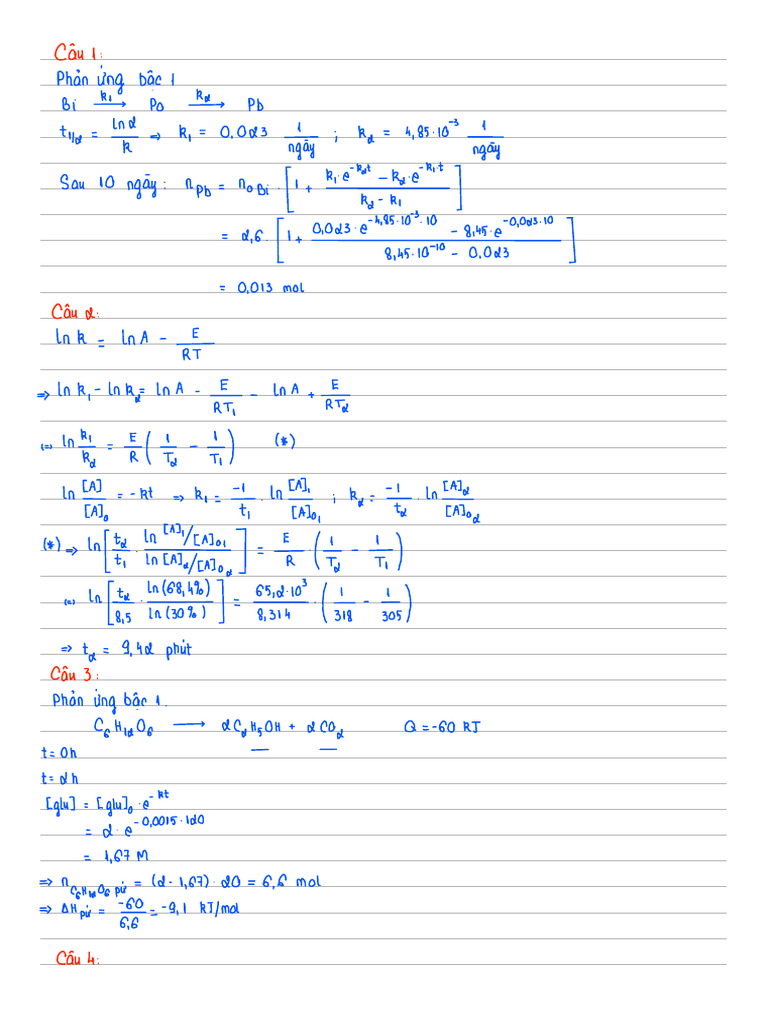 Câu 1:
Phản ứng bậc 1
Bi —k₁→ Po —k₂→ Pb
t₁/₂ = ln2/k ⇒ k₁ = 0,023 1/ngày ; k₂ = 4,85·10⁻³ 1/ngày
Sau 10 ngày: n_Pb = n₀Bi · [1 + (k₁·e^(-k₂t) - k₂·e^(-k₁·t))/(k₂ - k₁)]
= 2,6 · [1 + (0,023·e^(-4,85·10⁻³·10) - 8,45·e^(-0,023·10))/(8,45·10⁻¹⁰ - 0,023)]
= 0,013 mol
Câu 2:
ln k = ln A - E/RT
⇒ ln k₁ - ln k₂ = ln A - E/RT₁ - ln A + E/RT₂
⇔ ln k₁/k₂ = E/R (1/T₂ - 1/T₁) (*)
ln [A]/[A]₀ = -kt ⇒ k₁ = -1/t₁ · ln [A]₁/[A]₀₁ ; k₂ = -1/t₂ · ln [A]₂/[A]₀₂
(*) ⇒ ln[t₂/t₁ · (ln [A]₁/[A]₀₁)/(ln [A]₂/[A]₀₂)] = E/R · (1/T₂ - 1/T₁)
⇔ ln[t₂/8,5 · ln(68,4%)/ln(30%)] = 65,2·10³/8,314 · (1/318 - 1/305)
⇒ t₂ = 9,42 phút
Câu 3:
Phản ứng bậc 1.
C₆H₁₂O₆ ⟶ 2C₂H₅OH + 2CO₂ Q = -60 KJ
t = 0h — —
t = 2h
[glu] = [glu]₀·e^(-kt)
= 2·e^(-0,0015·120)
= 1,67 M
⇒ n_C₆H₁₂O₆ pứ = (2 - 1,67) · 20 = 6,6 mol
⇒ ΔH_pứ = -60/6,6 = -9,1 kJ/mol
Câu 4: